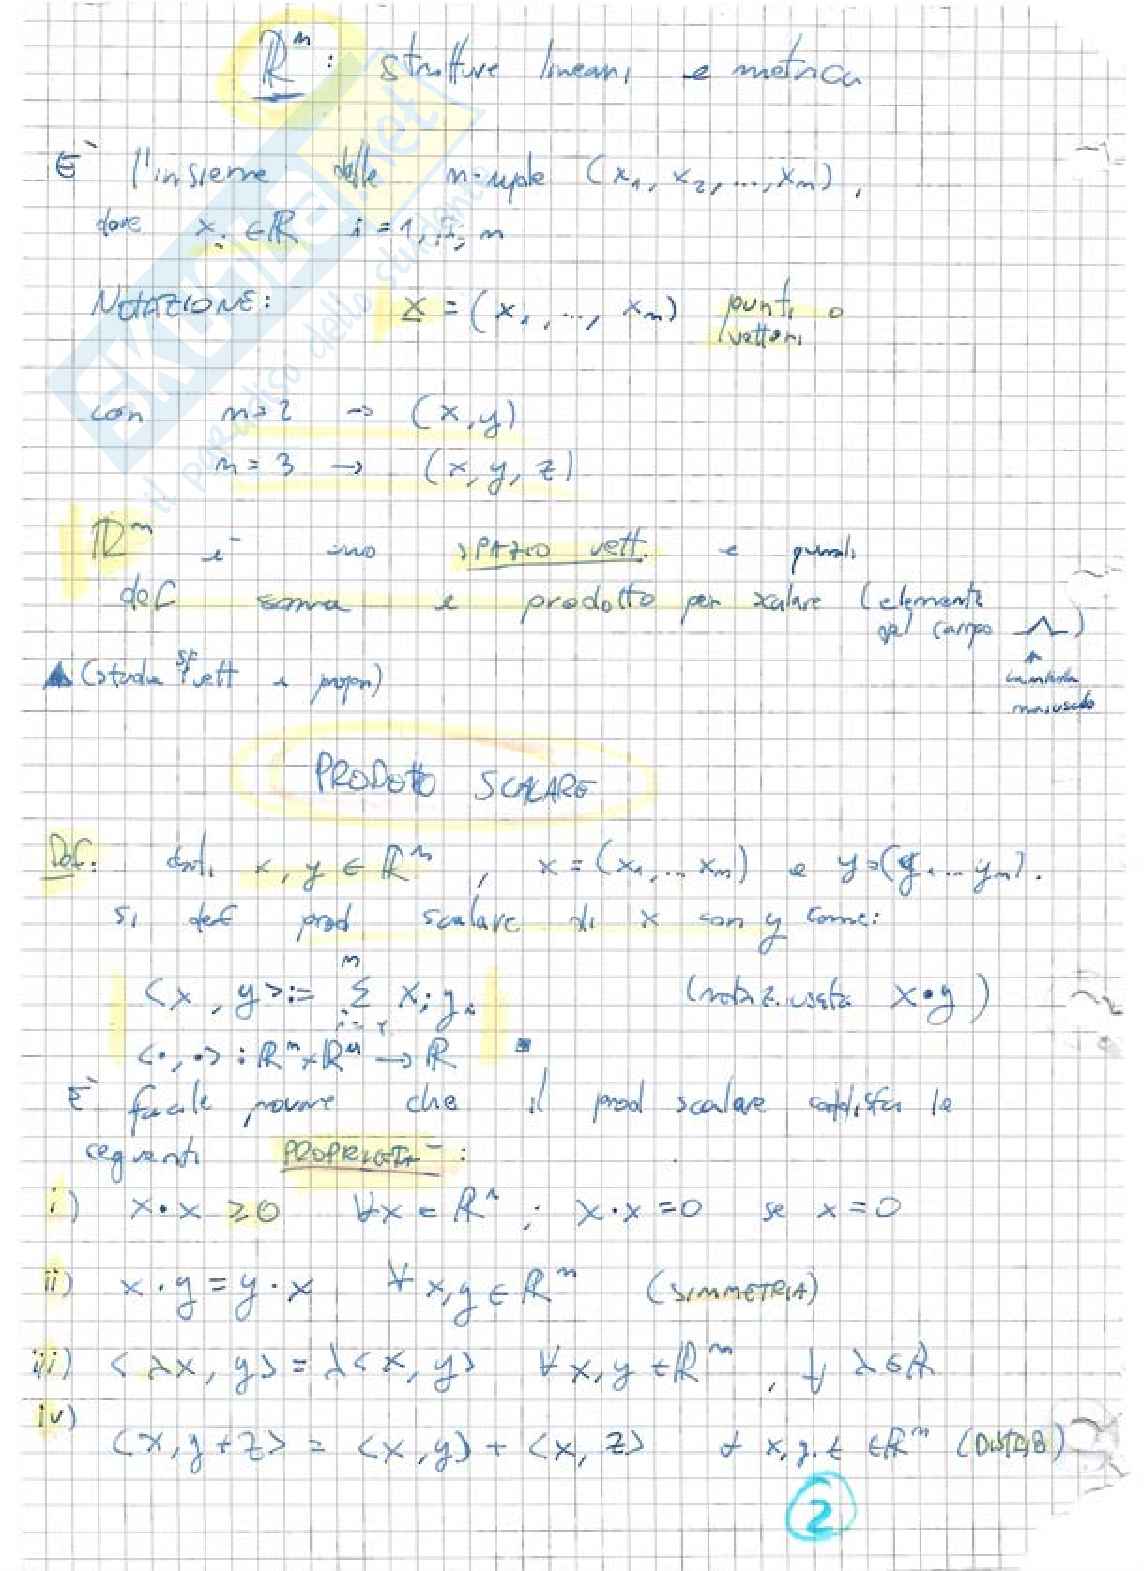 ℝⁿ: strutture lineari e metrica
È l'insieme delle n-uple (x₁, x₂, ..., xₙ),
dove xᵢ ∈ ℝ i = 1, ..., n
NOTAZIONE: x = (x₁, ..., xₙ) punti o
vettori
con n=2 → (x,y)
n = 3 → (x, y, z)
ℝⁿ è uno SPAZIO vett. e quindi
def somma e prodotto per scalare (elemento
del campo Λ)
lambda
maiuscolo
(studia sp vett e propr)
PRODOTTO SCALARE
Def: dati x, y ∈ ℝⁿ, x = (x₁, ... xₙ) e y = (y₁ ... yₙ).
si def prod scalare di x con y come:
<x, y> := Σⁿᵢ₌₁ xᵢ yᵢ (notaz. usata x•y)
<•, •> : ℝⁿ×ℝⁿ → ℝ
È facile provare che il prod scalare soddisfa le
seguenti PROPRIETA':
i) x•x ≥ 0 ∀x ∈ ℝⁿ; x•x = 0 se x = 0
ii) x•y = y•x ∀ x,y ∈ ℝⁿ (SIMMETRIA)
iii) <λx, y> = λ<x, y> ∀ x, y ∈ ℝⁿ, ∀ λ ∈ ℝ
iv) <x, y+z> = <x, y> + <x, z> ∀ x, y, z ∈ ℝⁿ (DISTRIB)
2
SKUOLA.net
il paradiso dello studente